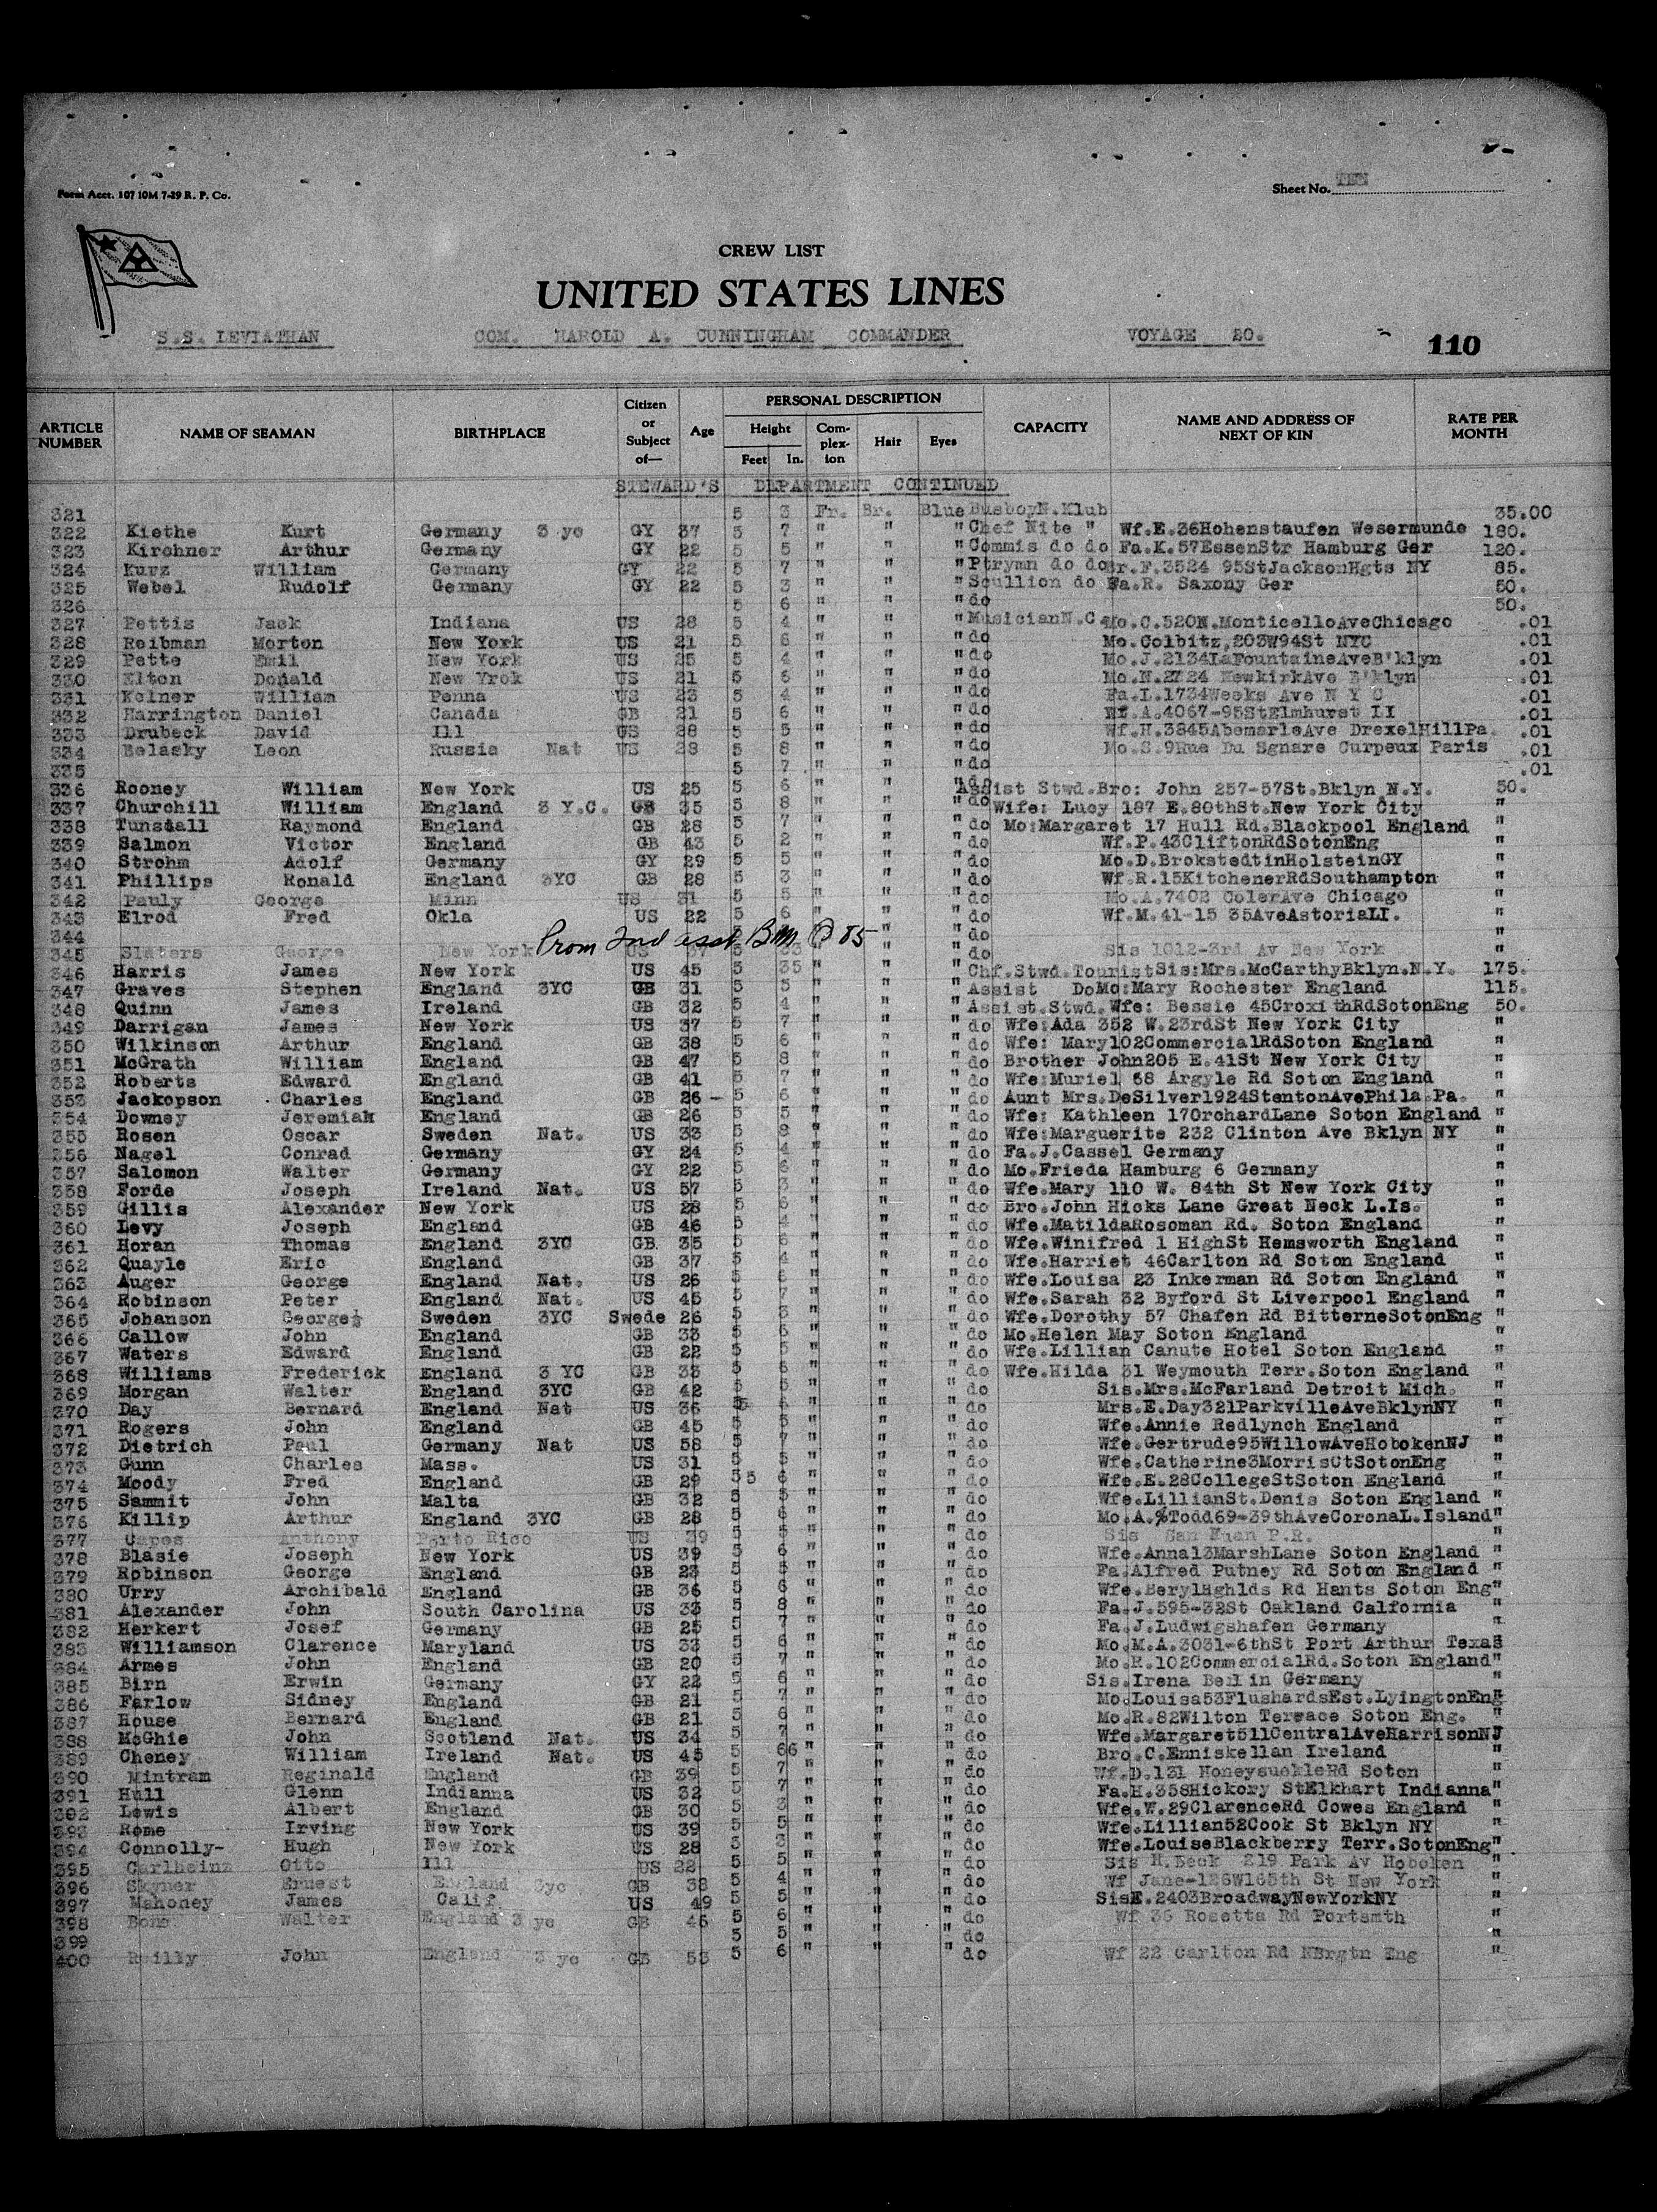 Form Acct. 107 10M 7-29 R. P. Co.
Sheet No. TEN
CREW LIST
UNITED STATES LINES
S.S. LEVIATHAN COM. HAROLD A. CUNNINGHAM COMMANDER VOYAGE 20. 110
ARTICLE NUMBER NAME OF SEAMAN BIRTHPLACE Citizen or Subject of— Age PERSONAL DESCRIPTION Height Feet In. Com-plex-ion Hair Eyes CAPACITY NAME AND ADDRESS OF NEXT OF KIN RATE PER MONTH
STEWARD'S DEPARTMENT CONTINUED
321 5 3 Fr. Br. Blue BusboyN.Klub 35.00
322 Kiethe Kurt Germany 3 yc GY 37 5 7 " " " Chef Nite " Wf.E.36Hohenstaufen Wesermunde 180.
323 Kirchner Arthur Germany GY 22 5 5 " " " Commis do do Fa.K.57EssenStr Hamburg Ger 120.
324 Kurz William Germany GY 22 5 7 " " " Ptrymn do do Br.F.3524 95StJacksonHgts NY 85.
325 Webel Rudolf Germany GY 22 5 3 " " " Scullion do Fa.R. Saxony Ger 50.
326 5 6 " " " do 50.
327 Pettis Jack Indiana US 28 5 4 " " " MusicianN.C. Mo.C.520N.MonticelloAveChicago .01
328 Reibman Morton New York US 21 5 6 " " " do Mo.Colbitz,203W94St NYC .01
329 Pette Emil New York US 25 5 4 " " " do Mo.J.2134LaFountaineAveB'klyn .01
330 Elton Donald New Yrok US 21 5 6 " " " do Mo.N.2124 NewkirkAve B'klyn .01
331 Kelner William Penna US 23 5 4 " " " do Fa.L.1734Weeks Ave N Y C .01
332 Harrington Daniel Canada GB 21 5 6 " " " do Wf.A.4067-95StElmhurst LI .01
333 Drubeck David Ill US 28 5 5 " " " do Wf.H.3845AbemarleAve DrexelHillPa. .01
334 Belasky Leon Russia Nat US 28 5 8 " " " do Mo.S.9Rue Du Sgnare Curpeux Paris .01
335 5 7 " " " do .01
336 Rooney William New York US 25 5 6 " " " do Assist Stwd.Bro: John 257-57St.Bklyn N.Y. 50.
337 Churchill William England 3 Y.C. GB 35 5 8 " " " do Wife: Lucy 187 E.80thSt.New York City "
338 Tunstall Raymond England GB 28 5 7 " " " do Mo:Margaret 17 Hull Rd.Blackpool England "
339 Salmon Victor England GB 43 5 2 " " " do Wf.P.43CliftonRdSotonEng "
340 Strohm Adolf Germany GY 29 5 5 " " " do Mo.D.BrokstedtinHolsteinGY "
341 Phillips Ronald England 3YC GB 28 5 3 " " " do Wf.R.15KitchenerRdSouthampton "
342 Pauly George Minn US 31 5 5 " " " do Mo.A.7402 ColerAve Chicago "
343 Elrod Fred Okla US 22 5 6 " " " do Wf.M.41-15 35AveAstoriaLI. "
344 Prom 2nd asst. BM @ 85 " " do "
345 Slaters George New York US 37 5 " " do Sis 1012-3rd Av New York "
346 Harris James New York US 45 5 35 " " " Chf.Stwd.TouristSis:Mrs.McCarthyBklyn.N.Y. 175.
347 Graves Stephen England 3YC GB 31 5 5 " " " Assist DoMo:Mary Rochester England 115.
348 Quinn James Ireland GB 32 5 4 " " " Assist.Stwd.Wfe: Bessie 45CroxithRdSotonEng 50.
349 Darrigan James New York US 37 5 7 " " " do Wfe:Ada 352 W.23rdSt New York City "
350 Wilkinson Arthur England GB 38 5 6 " " " do Wfe: Mary102CommercialRdSoton England "
351 McGrath William England GB 47 5 8 " " " do Brother John205 E.41St New York City "
352 Roberts Edward England GB 41 5 7 " " " do Wfe:Muriel 68 Argyle Rd Soton England "
353 Jackopson Charles England GB 26 - 5 6 " " " do Aunt Mrs.DeSilver1924StentonAvePhila.Pa. "
354 Downey Jeremiah England GB 26 5 5 " " " do Wfe: Kathleen 17OrchardLane Soton England "
355 Rosen Oscar Sweden Nat. US 33 5 8 " " " do Wfe:Marguerite 232 Clinton Ave Bklyn NY "
356 Nagel Conrad Germany GY 24 5 4 " " " do Fa.J.Cassel Germany "
357 Salomon Walter Germany GY 22 5 6 " " " do Mo.Frieda Hamburg 6 Germany "
358 Forde Joseph Ireland Nat. US 57 5 3 " " " do Wfe.Mary 110 W. 84th St New York City "
359 Gillis Alexander New York US 28 5 6 " " " do Bro.John Hicks Lane Great Neck L.Is. "
360 Levy Joseph England GB 46 5 4 " " " do Wfe.MatildaRosoman Rd. Soton England "
361 Horan Thomas England 3YC GB. 35 5 6 " " " do Wfe.Winifred 1 HighSt Hemsworth England "
362 Quayle Eric England GB 37 5 4 " " " do Wfe.Harriet 46Carlton Rd Soton England "
363 Auger George England Nat. US 26 5 6 " " " do Wfe.Louisa 23 Inkerman Rd Soton England "
364 Robinson Peter England Nat. US 45 5 7 " " " do Wfe.Sarah 32 Byford St Liverpool England "
365 Johanson George Sweden 3YC Swede 26 5 3 " " " do Wfe.Dorothy 57 Chafen Rd BitterneSotonEng "
366 Callow John England GB 33 5 6 " " " do Mo.Helen May Soton England "
367 Waters Edward England GB 22 5 5 " " " do Wfe.Lillian Canute Hotel Soton England "
368 Williams Frederick England 3 YC GB 33 5 6 " " " do Wfe.Hilda 31 Weymouth Terr.Soton England "
369 Morgan Walter England 3YC GB 42 5 5 " " " do Sis.Mrs.McFarland Detroit Mich. "
370 Day Bernard England Nat US 36 5 6 " " " do Mrs.E.Day321ParkvilleAveBklynNY "
371 Rogers John England GB 45 5 5 " " " do Wfe.Annie Redlynch England "
372 Dietrich Paul Germany Nat US 58 5 7 " " " do Wfe.Gertrude95WillowAveHobokenNJ "
373 Gunn Charles Mass. US 31 5 5 " " " do Wfe.Catherine3MorrisCtSotonEng "
374 Moody Fred England GB 29 55 6 " " " do Wfe.E.28CollegeStSoton England "
375 Sammit John Malta GB 32 5 5 " " " do Wfe.LillianSt.Denis Soton England "
376 Killip Arthur England 3YC GB 28 5 6 " " " do Mo.A.%Todd69-39thAveCoronaL.Island"
377 Capes Anthony Porto Rico US 39 5 5 " " " do Sis San Kuan P.R. "
378 Blasie Joseph New York US 39 5 6 " " " do Wfe.Anna13MarshLane Soton England "
379 Robinson George England GB 23 5 5 " " " do Fa.Alfred Putney Rd Soton England "
380 Urry Archibald England GB 36 5 6 " " " do Wfe.BerylHghlds Rd Hants Soton Eng"
381 Alexander John South Carolina US 33 5 8 " " " do Fa.J.595-32St Oakland Calfornia "
382 Herkert Josef Germany GB 25 5 7 " " " do Fa.J.Ludwigshafen Germany "
383 Williamson Clarence Maryland US 33 5 6 " " " do Mo.M.A.3031-6thSt Port Arthur Texas
384 Armes John England GB 20 5 7 " " " do Mo.R.102CommercialRd.Soton England"
385 Birn Erwin Germany GY 22 5 6 " " " do Sis.Irena Berlin Germany "
386 Farlow Sidney England GB 21 5 7 " " " do Mo.Louisa53FlushardsEst.LyingtonEng
387 House Bernard England GB 21 5 6 " " " do Mo.R.82Wilton Terrace Soton Eng. "
388 McGhie John Scotland Nat. US 34 5 7 " " " do Wfe.Margaret511CentralAveHarrisonNJ
389 Cheney William Ireland Nat. US 45 5 66 " " " do Bro.C.Enniskellan Ireland "
390 Mintram Reginald England GB 39 5 7 " " " do Wf.D.131 HoneysuckleRd Soton "
391 Hull Glenn Indianna US 32 5 7 " " " do Fa.H.358Hickory StElkhart Indianna"
392 Lewis Albert England GB 30 5 3 " " " do Wfe.W.29ClarenceRd Cowes England "
393 Rome Irving New York US 39 5 5 " " " do Wfe.Lillian52Cook St Bklyn NY "
394 Connolly- Hugh New York US 28 5 3 " " " do Wfe.LouiseBlackberry Terr.SotonEng"
395 Carlheinz Otto Ill US 22 5 5 " " " do Sis H.Beck 219 Park Av Hoboken "
396 Skyner Ernest England 3yc GB 38 5 4 " " " do Wf Jane-126W165th St New York "
397 Mahoney James Calif US 49 5 5 " " " do SisE.2403BroadwayNewYorkNY "
398 Bone Walter England 3 yc GB 46 5 6 " " " do Wf 36 Rosetta Rd Portsmth "
399 5 5 " " " do
400 Reilly John England 3 yc GB 53 5 6 " " " do Wf 22 Carlton Rd NBrgtn Eng "